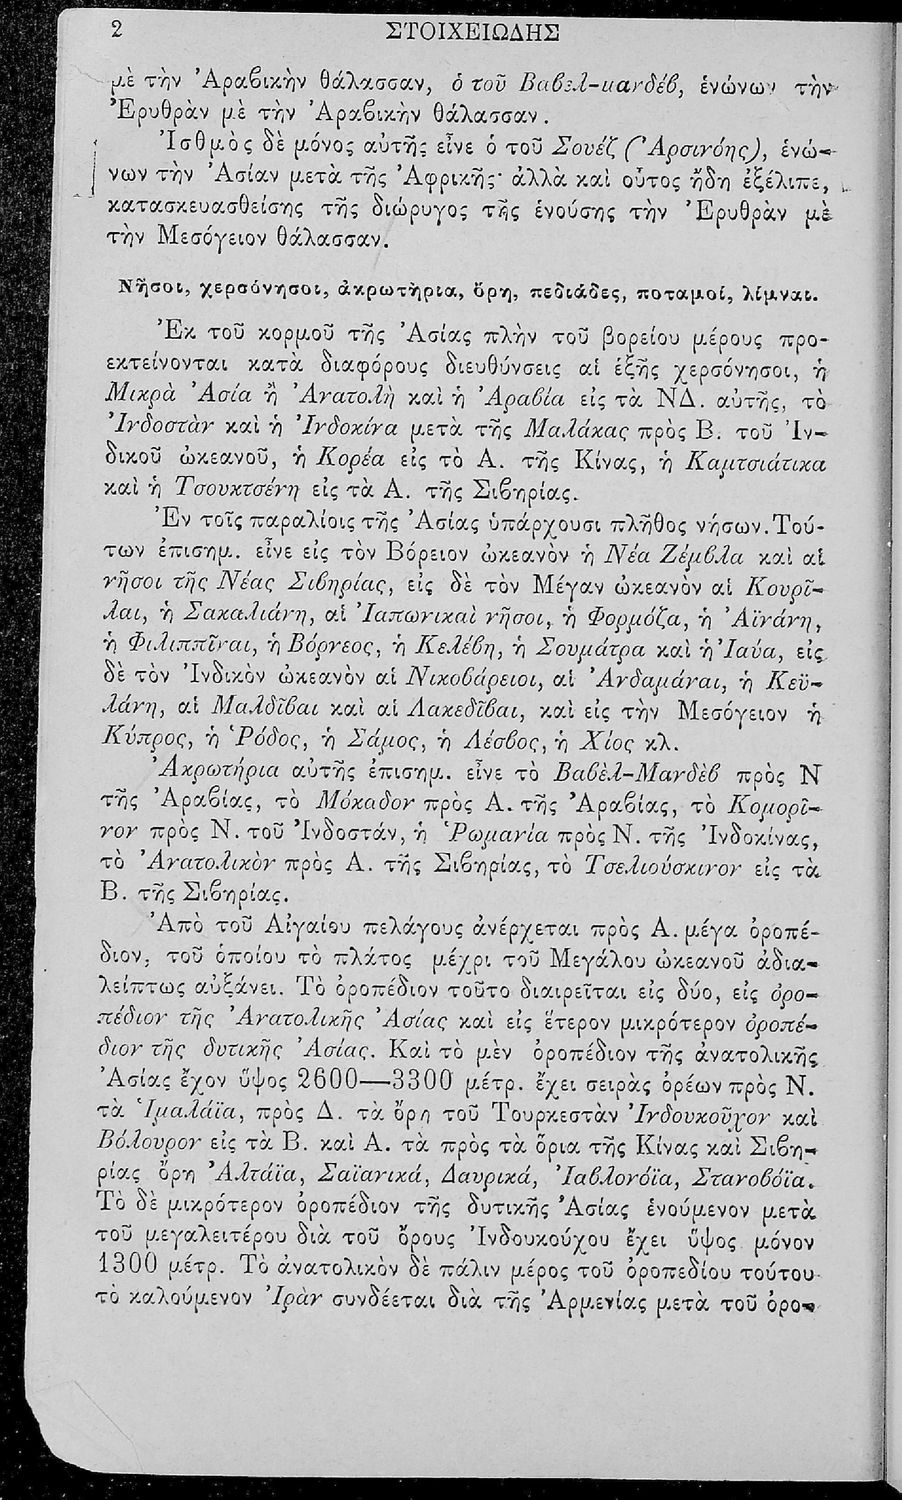 2 ΣΤΟΙΧΕΙΩΔΗΣ
μὲ τὴν Ἀραβικὴν θάλασσαν, ὁ τοῦ Βαβὲλ-μανδέβ, ἑνώνων τὴν
Ἐρυθρὰν μὲ τὴν Ἀραβικὴν θάλασσαν.
Ἰσθμὸς δὲ μόνος αὐτῆς εἶνε ὁ τοῦ Σουέζ (Ἀρσινόης), ἑνώ-
νων τὴν Ἀσίαν μετὰ τῆς Ἀφρικῆς· ἀλλὰ καὶ οὗτος ἤδη ἐξέλιπε,
κατασκευασθείσης τῆς διώρυγος τῆς ἑνούσης τὴν Ἐρυθρὰν μὲ
τὴν Μεσόγειον θάλασσαν.
Νῆσοι, χερσόνησοι, ἀκρωτήρια, ὄρη, πεδιάδες, ποταμοί, λίμναι.
Ἐκ τοῦ κορμοῦ τῆς Ἀσίας πλὴν τοῦ βορείου μέρους προ-
εκτείνονται κατὰ διαφόρους διευθύνσεις αἱ ἑξῆς χερσόνησοι, ἡ
Μικρὰ Ἀσία ἢ Ἀνατολὴ καὶ ἡ Ἀραβία εἰς τὰ ΝΔ. αὐτῆς, τὸ
Ἰνδοστὰν καὶ ἡ Ἰνδοκίνα μετὰ τῆς Μαλάκας πρὸς Β. τοῦ Ἰν-
δικοῦ ὠκεανοῦ, ἡ Κορέα εἰς τὸ Α. τῆς Κίνας, ἡ Καμτσιάτικα
καὶ ἡ Τσουκτσένη εἰς τὰ Α. τῆς Σιβηρίας.
Ἐν τοῖς παραλίοις τῆς Ἀσίας ὑπάρχουσι πλῆθος νήσων. Τού-
των ἐπισημ. εἶνε εἰς τὸν Βόρειον ὠκεανὸν ἡ Νέα Ζέμβλα καὶ αἱ
νῆσοι τῆς Νέας Σιβηρίας, εἰς δὲ τὸν Μέγαν ὠκεανὸν αἱ Κουρῖ-
λαι, ἡ Σακαλιάνη, αἱ Ἰαπωνικαὶ νῆσοι, ἡ Φορμόζα, ἡ Ἀϊνάνη,
ἡ Φιλιππῖναι, ἡ Βόρνεος, ἡ Κελέβη, ἡ Σουμάτρα καὶ ἡ Ἰαύα, εἰς
δὲ τὸν Ἰνδικὸν ὠκεανὸν αἱ Νικοβάρειοι, αἱ Ἀνδαμάναι, ἡ Κεϋ-
λάνη, αἱ Μαλδῖβαι καὶ αἱ Λακεδῖβαι, καὶ εἰς τὴν Μεσόγειον ἡ
Κύπρος, ἡ Ῥόδος, ἡ Σάμος, ἡ Λέσβος, ἡ Χίος κλ.
Ἀκρωτήρια αὐτῆς ἐπισημ. εἶνε τὸ Βαβὲλ-Μανδὲβ πρὸς Ν
τῆς Ἀραβίας, τὸ Μόκαδον πρὸς Α. τῆς Ἀραβίας, τὸ Κομορῖ-
νον πρὸς Ν. τοῦ Ἰνδοστάν, ἡ Ῥωμανία πρὸς Ν. τῆς Ἰνδοκίνας,
τὸ Ἀνατολικὸν πρὸς Α. τῆς Σιβηρίας, τὸ Τσελιούσκινον εἰς τὰ
Β. τῆς Σιβηρίας.
Ἀπὸ τοῦ Αἰγαίου πελάγους ἀνέρχεται πρὸς Α. μέγα ὀροπέ-
διον, τοῦ ὁποίου τὸ πλάτος μέχρι τοῦ Μεγάλου ὠκεανοῦ ἀδια-
λείπτως αὐξάνει. Τὸ ὀροπέδιον τοῦτο διαιρεῖται εἰς δύο, εἰς ὀρο-
πέδιον τῆς Ἀνατολικῆς Ἀσίας καὶ εἰς ἕτερον μικρότερον ὀροπέ-
διον τῆς δυτικῆς Ἀσίας. Καὶ τὸ μὲν ὀροπέδιον τῆς ἀνατολικῆς
Ἀσίας ἔχον ὕψος 2600—3300 μέτρ. ἔχει σειρὰς ὀρέων πρὸς Ν.
τὰ Ἱμαλάϊα, πρὸς Δ. τὰ ὄρη τοῦ Τουρκεστὰν Ἰνδουκοῦχον καὶ
Βόλουρον εἰς τὰ Β. καὶ Α. τὰ πρὸς τὰ ὅρια τῆς Κίνας καὶ Σιβη-
ρίας ὄρη Ἀλτάϊα, Σαϊανικά, Δαυρικά, Ἰαβλονόϊα, Στανοβόϊα.
Τὸ δὲ μικρότερον ὀροπέδιον τῆς δυτικῆς Ἀσίας ἑνούμενον μετὰ
τοῦ μεγαλειτέρου διὰ τοῦ ὄρους Ἰνδουκούχου ἔχει ὕψος μόνον
1300 μέτρ. Τὸ ἀνατολικὸν δὲ πάλιν μέρος τοῦ ὀροπεδίου τούτου
τὸ καλούμενον Ἰρὰν συνδέεται διὰ τῆς Ἀρμενίας μετὰ τοῦ ὀρο-